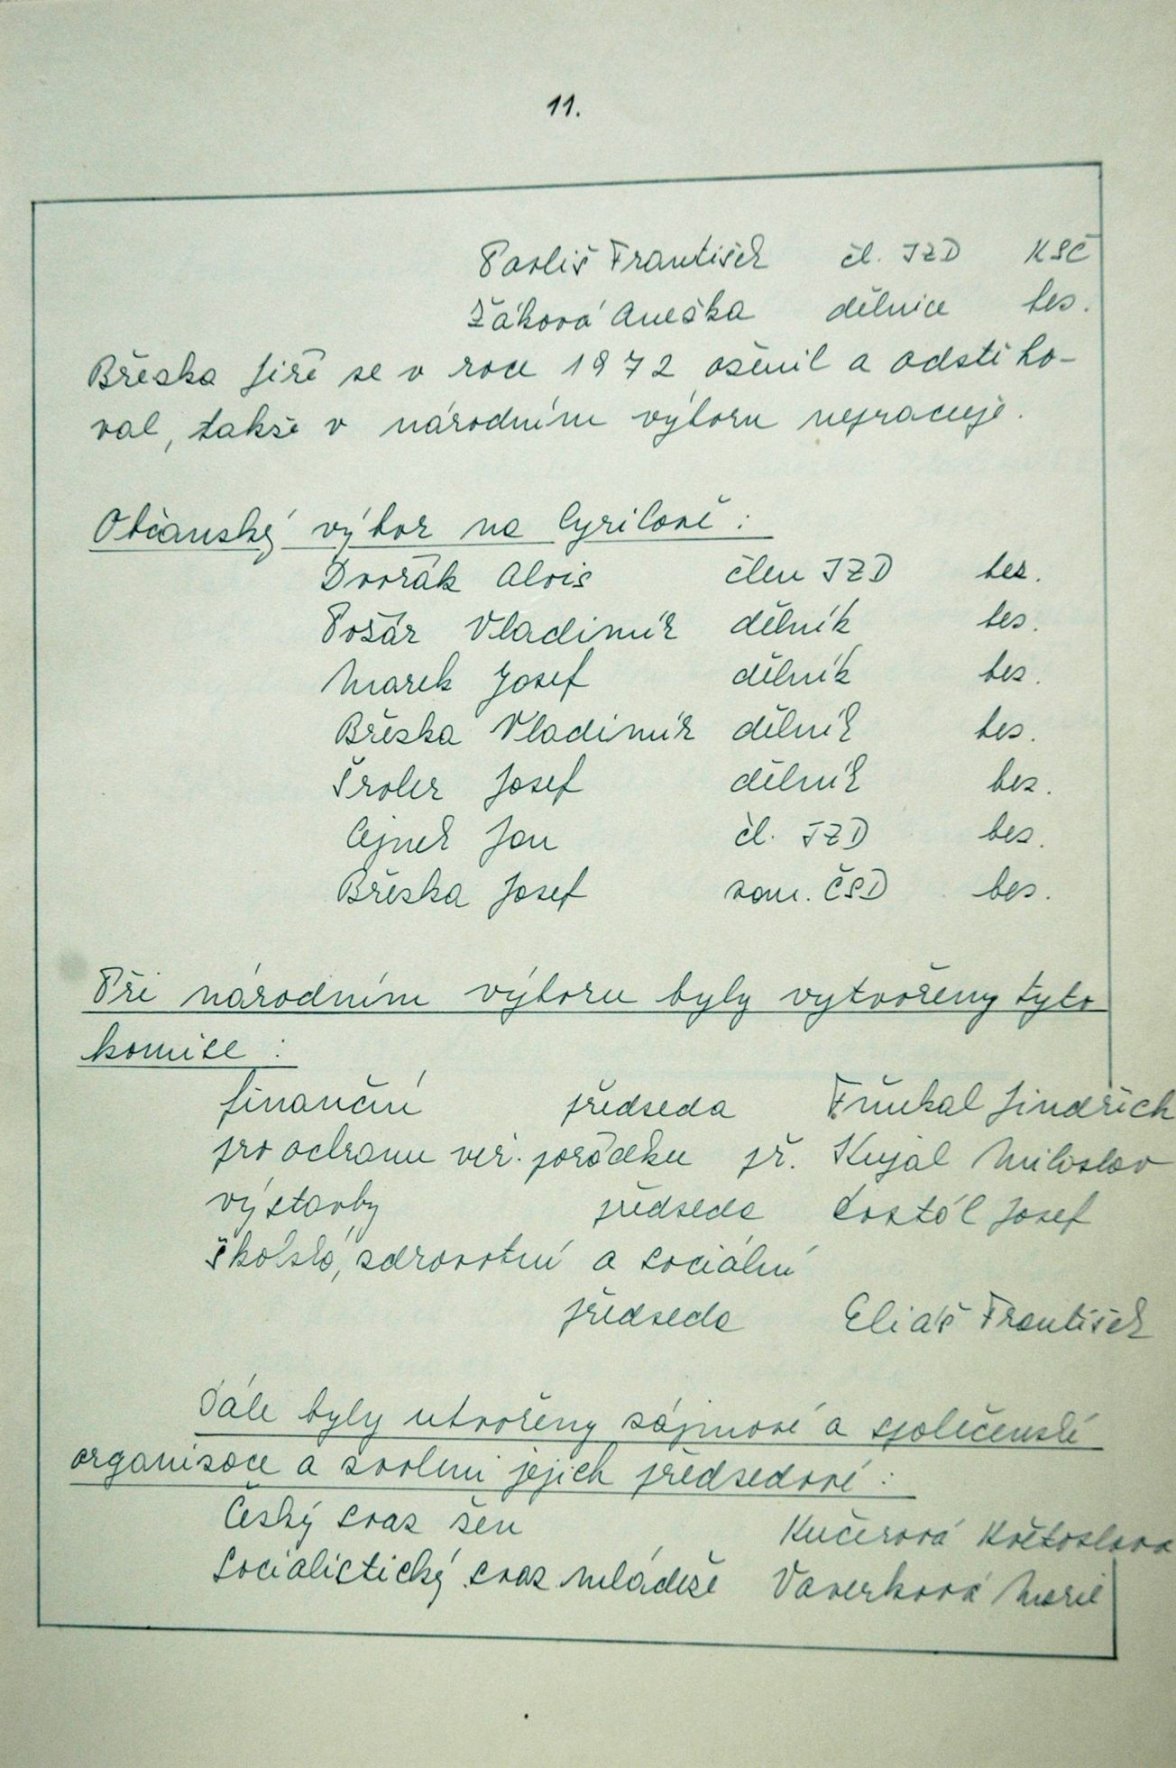 11.
Pavliš František čl. JZD KSČ
Žáková Anežka dělnice bez.
Břeska Jiří se v roce 1972 oženil a odstěho-
val, takže v národním výboru nepracuje.
Občanský výbor na Cyrilově:
Dvořák Alois člen JZD bez.
Požár Vladimír dělník bez.
Marek Josef dělník bez.
Břeska Vladimír dělník bez.
Šroler Josef dělník bez.
Cejnek Jan čl. JZD bez.
Břeska Josef zam. ČSD bez.
Při národním výboru byly vytvořeny tyto
komise:
finanční předseda Jindřich
pro ochranu veř. pořádku př. Kujal Miloslav
výstavby předseda Dostál Josef
školská, zdravotní a sociální
předseda Eliáš František
Dále byly utvořeny zájmové a společenské
organizace a zvoleni jejich předsedové:
Český svaz žen Kučerová Květoslava
Socialistický svaz mládeže Vaverková Marie